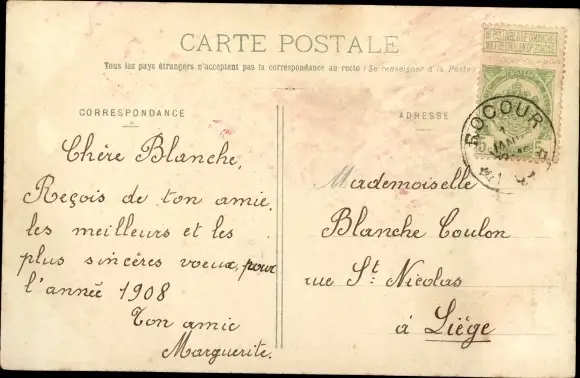 CARTE POSTALE
Tous les pays étrangers n'acceptent pas la correspondance au recto (Se renseigner à la Poste)
CORRESPONDANCE
ADRESSE
Chère Blanche,
Reçois de ton amie,
les meilleurs et les
plus sincères voeux, pour
l'année 1908
Ton amie
Marguerite.
Mademoiselle
Blanche Coulon
rue St. Nicolas
à Liège
ROCOUR
1
JANV